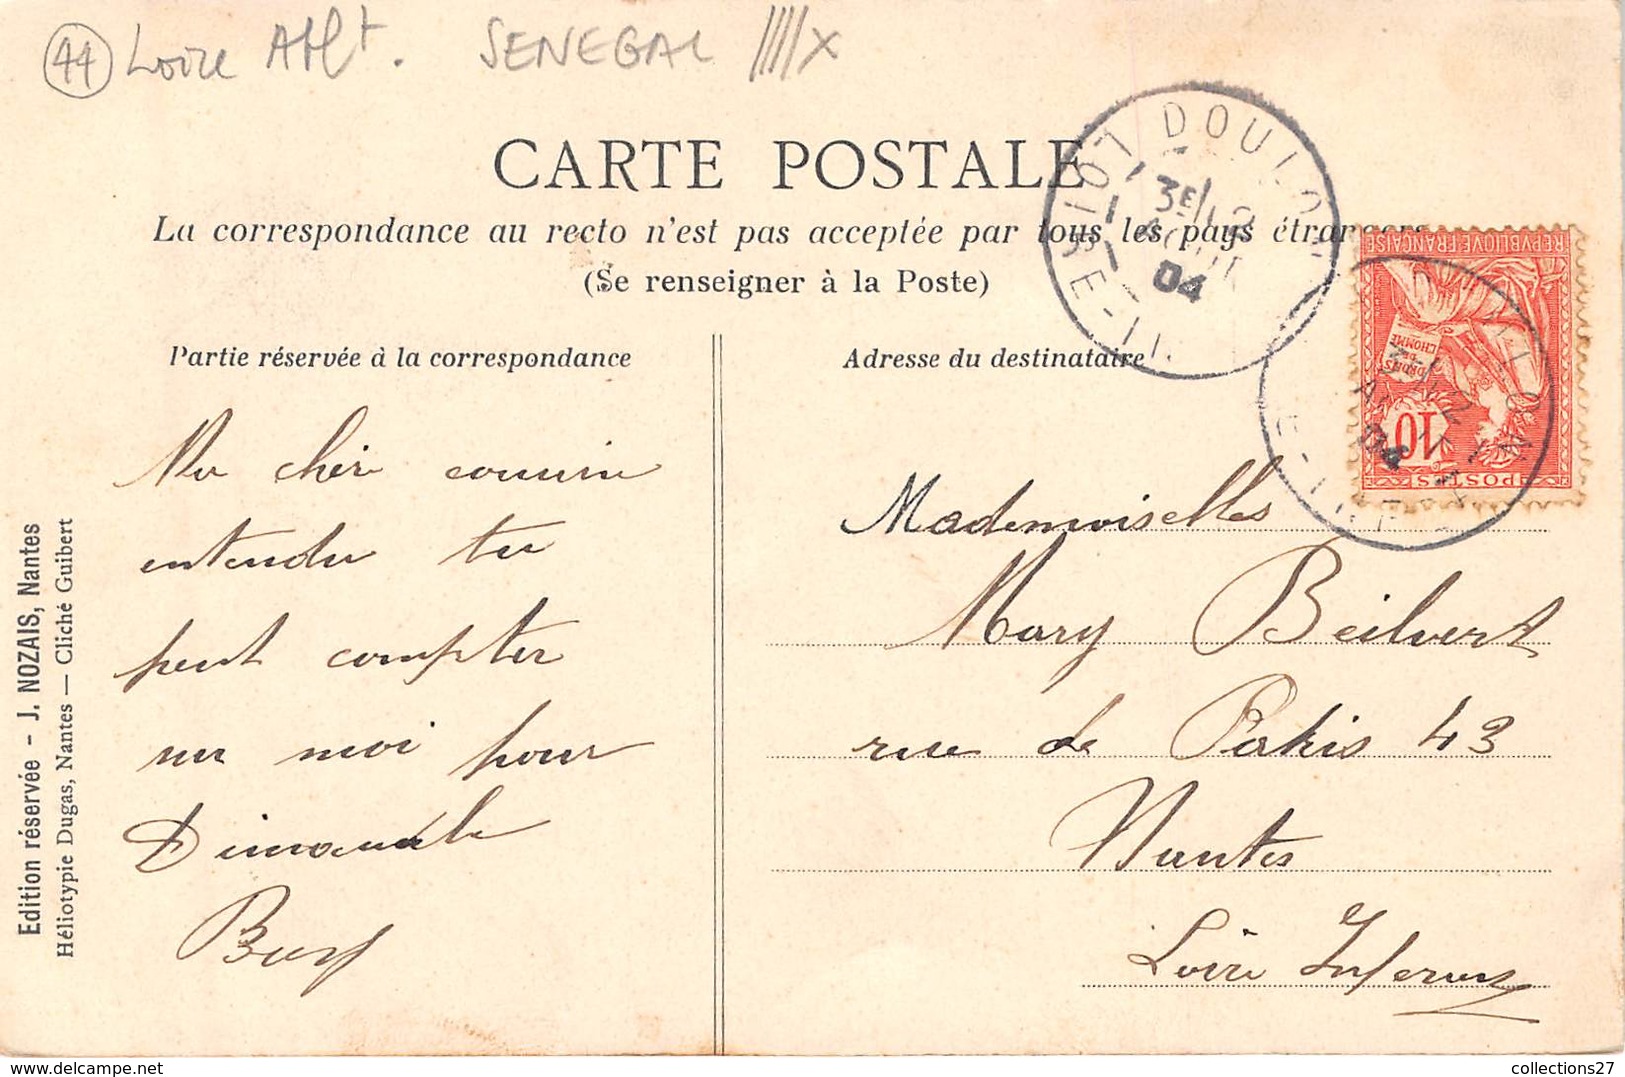 44 Loire Atlt. SENEGAL
CARTE POSTALE
La correspondance au recto n'est pas acceptée par tous les pays étrangers
(Se renseigner à la Poste)
Partie réservée à la correspondance
Adresse du destinataire
Ma chèr cousin
entendu tu
peut compter
sur moi pour
Dimanche
Mademoiselles
Mary Beilvert
rue de Paris 43
Nantes
Loire Inferieure
Edition réservée - J. NOZAIS, Nantes
Héliotypie Dugas, Nantes — Cliché Guibert
DOULON
3E
04
REPUBLIQUE FRANÇAISE
DROITS
DE
L'HOMME
10
POSTES
DOULON
04
collections27